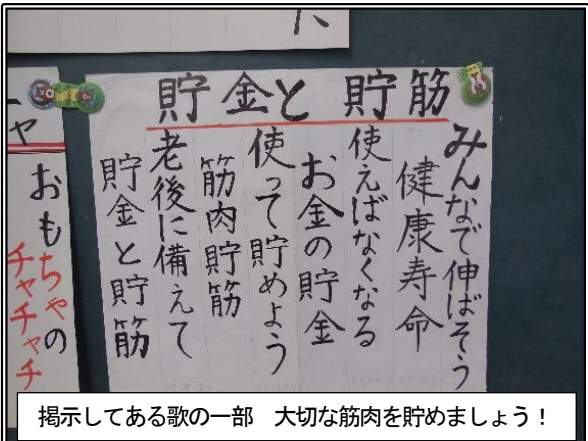 貯金と貯筋
みんなで伸ばそう
健康寿命
使えばなくなる
お金の貯金
使って貯めよう
筋肉貯筋
老後に備えて
貯金と貯筋
おもちゃの
チャチャチ
掲示してある歌の一部　大切な筋肉を貯めましょう！